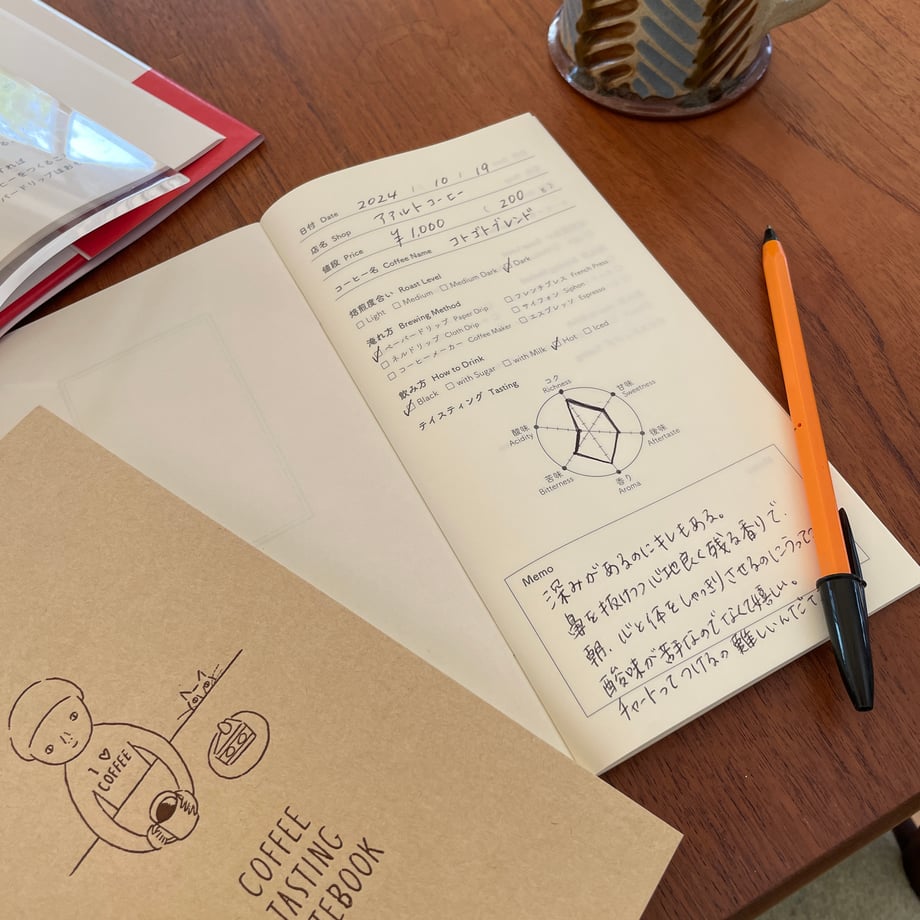 日付 Date 2024 10 19
店名 Shop アアルトコーヒー
値段 Price ¥1,000 ( 200
コーヒー名 Coffee Name コトゴトブレンド
焙煎度合い Roast Level
Light Medium Medium Dark Dark
淹れ方 Brewing Method
ペーパードリップ Paper Drip フレンチプレス French Press
ネルドリップ Cloth Drip サイフォン Siphon
コーヒーメーカー Coffee Maker エスプレッソ Espresso
飲み方 How to Drink
Black with Sugar with Milk Hot Iced
テイスティング Tasting
コク
Richness
甘味
Sweetness
後味
Aftertaste
香り
Aroma
苦味
Bitterness
酸味
Acidity
Memo
深みがあるのにキレもある。
鼻を抜けつつ心地良く残る香りで、
朝、心と体をしゃっきりさせるのにうって
酸味が苦手なのでなくて嬉しい。
チャートってつけるの難しいんだ
I ♡
COFFEE
COFFEE
TASTING
TEBOOK